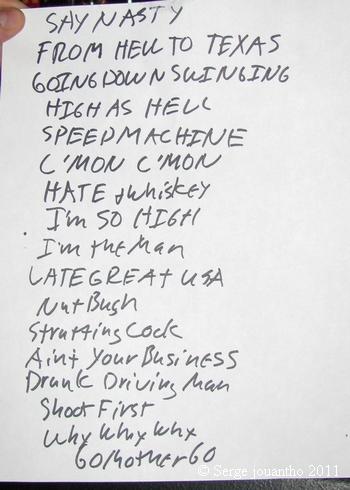 SAY NASTY
FROM HELL TO TEXAS
GOING DOWN SWINGING
HIGH AS HELL
SPEEDMACHINE
C'MON C'MON
HATE & Whiskey
I'm SO HIGH
I'm the Man
LATE GREAT USA
Nut Bush
Strutting Cock
Aint Your Business
Drunk Driving Man
Shoot First
Why Why Why
GO Mother GO
© Serge jouantho 2011